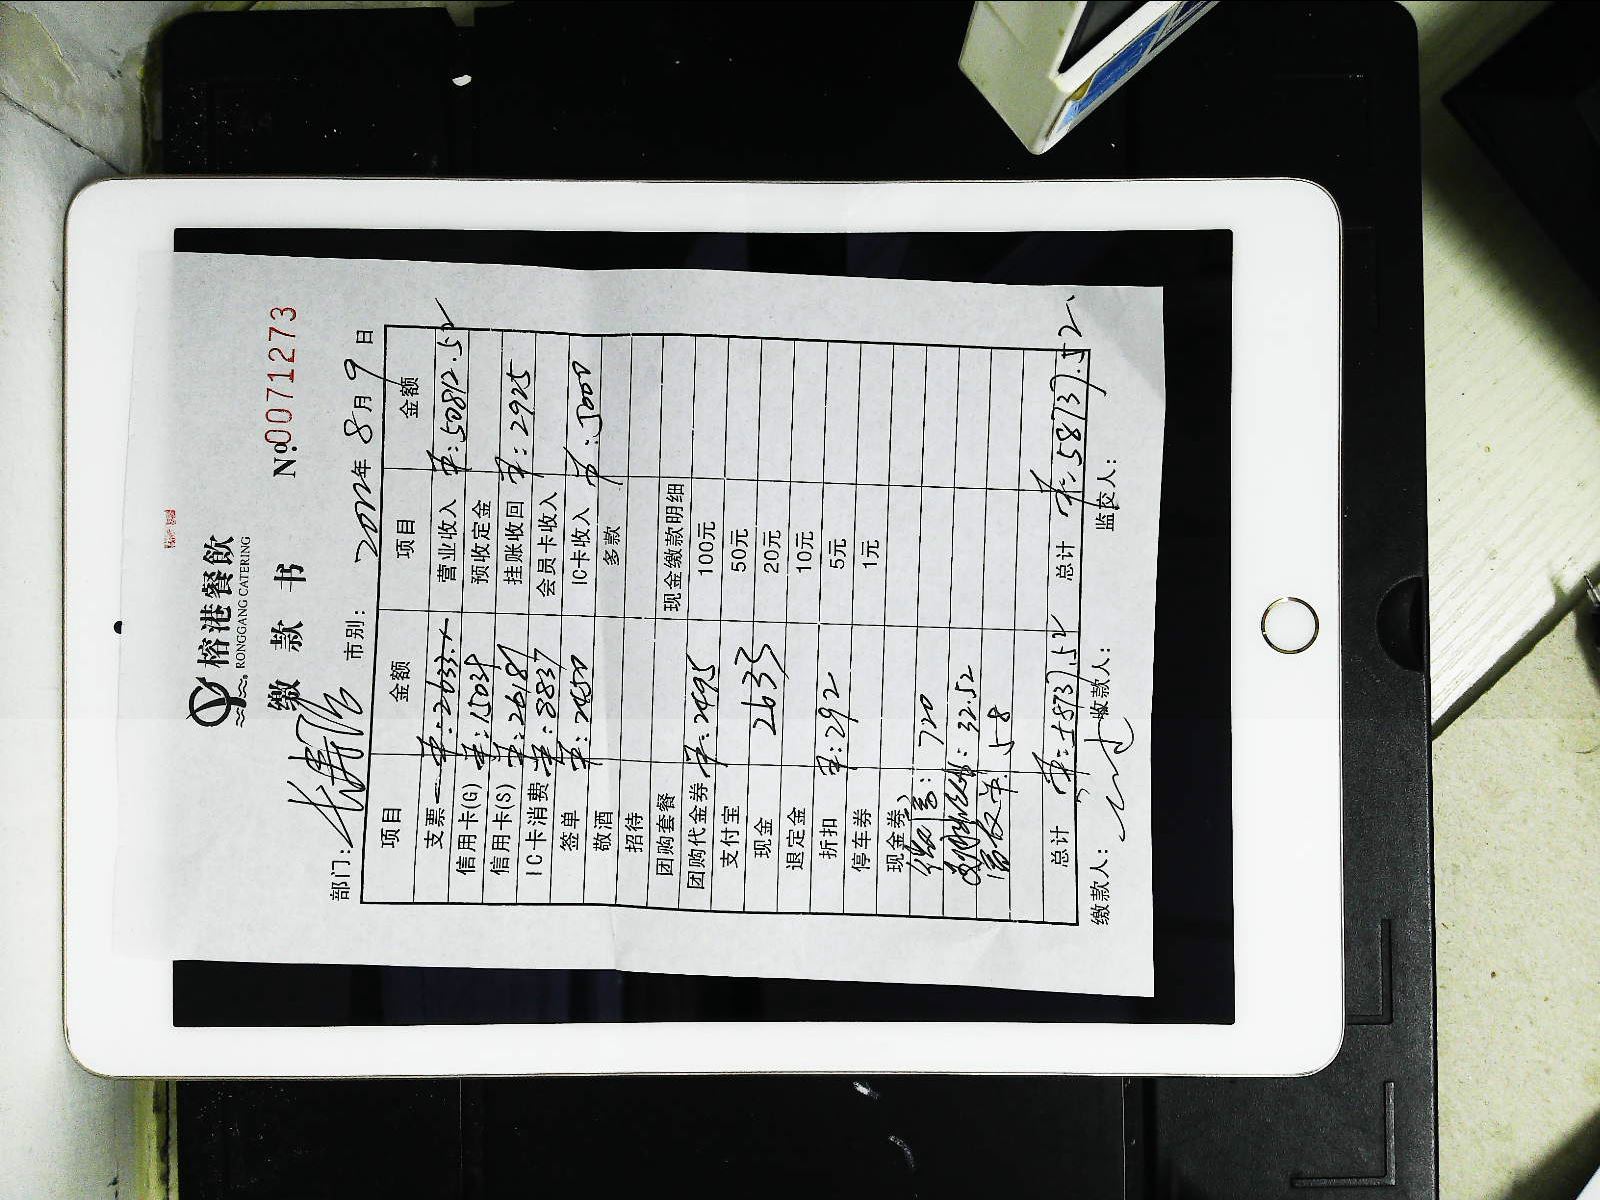 榕港餐飲
RONGGANG CATERING
缴 款 书 №0071273
部门: 市别: 2022年 8月 9日
项目 金额 项目 金额
支票 营业收入 :50812.52
信用卡(G) :15034 预收定金
信用卡(S) :26181 挂账收回 :2925
IC卡消费 :8837 会员卡收入
签单 :2450 IC卡收入 :5000
敬酒 多款
招待
团购套餐 现金缴款明细
团购代金券 :2495 100元
支付宝 50元
现金 2633 20元
退定金 10元
折扣 :292 5元
停车券 1元
现金券
:720
:32.52
58
总计 :58737.52 总计 :58737.52
缴款人: 收款人: 监交人: